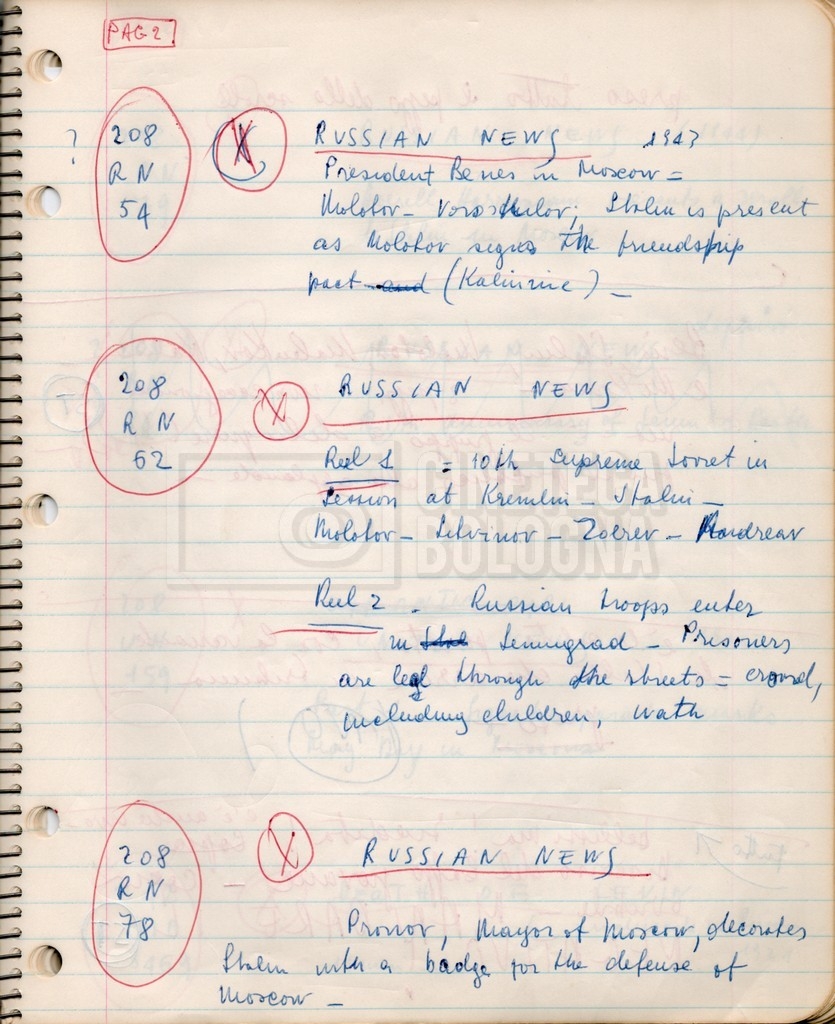 PAG 2
?
208
RN
54
X
RUSSIAN NEWS 1943
President Benes in Moscow =
Molotov - Voroshilov; Stalin is present
as Molotov signs the friendship
pact and (Kalinine) -
208
RN
62
X
RUSSIAN NEWS
Reel 1 = 10th Supreme Soviet in
session at Kremlin - Stalin -
Molotov - Litvinov - - Andreav
Reel 2 - Russian troops enter
in Leningrad - Prisoners
are led through the streets = crowd,
including children, wath
208
RN
78
- X
RUSSIAN NEWS
Pronov, Mayor of Moscow, decorates
Stalin with a badge for the defense of
Moscow -
CINETECA
BOLOGNA